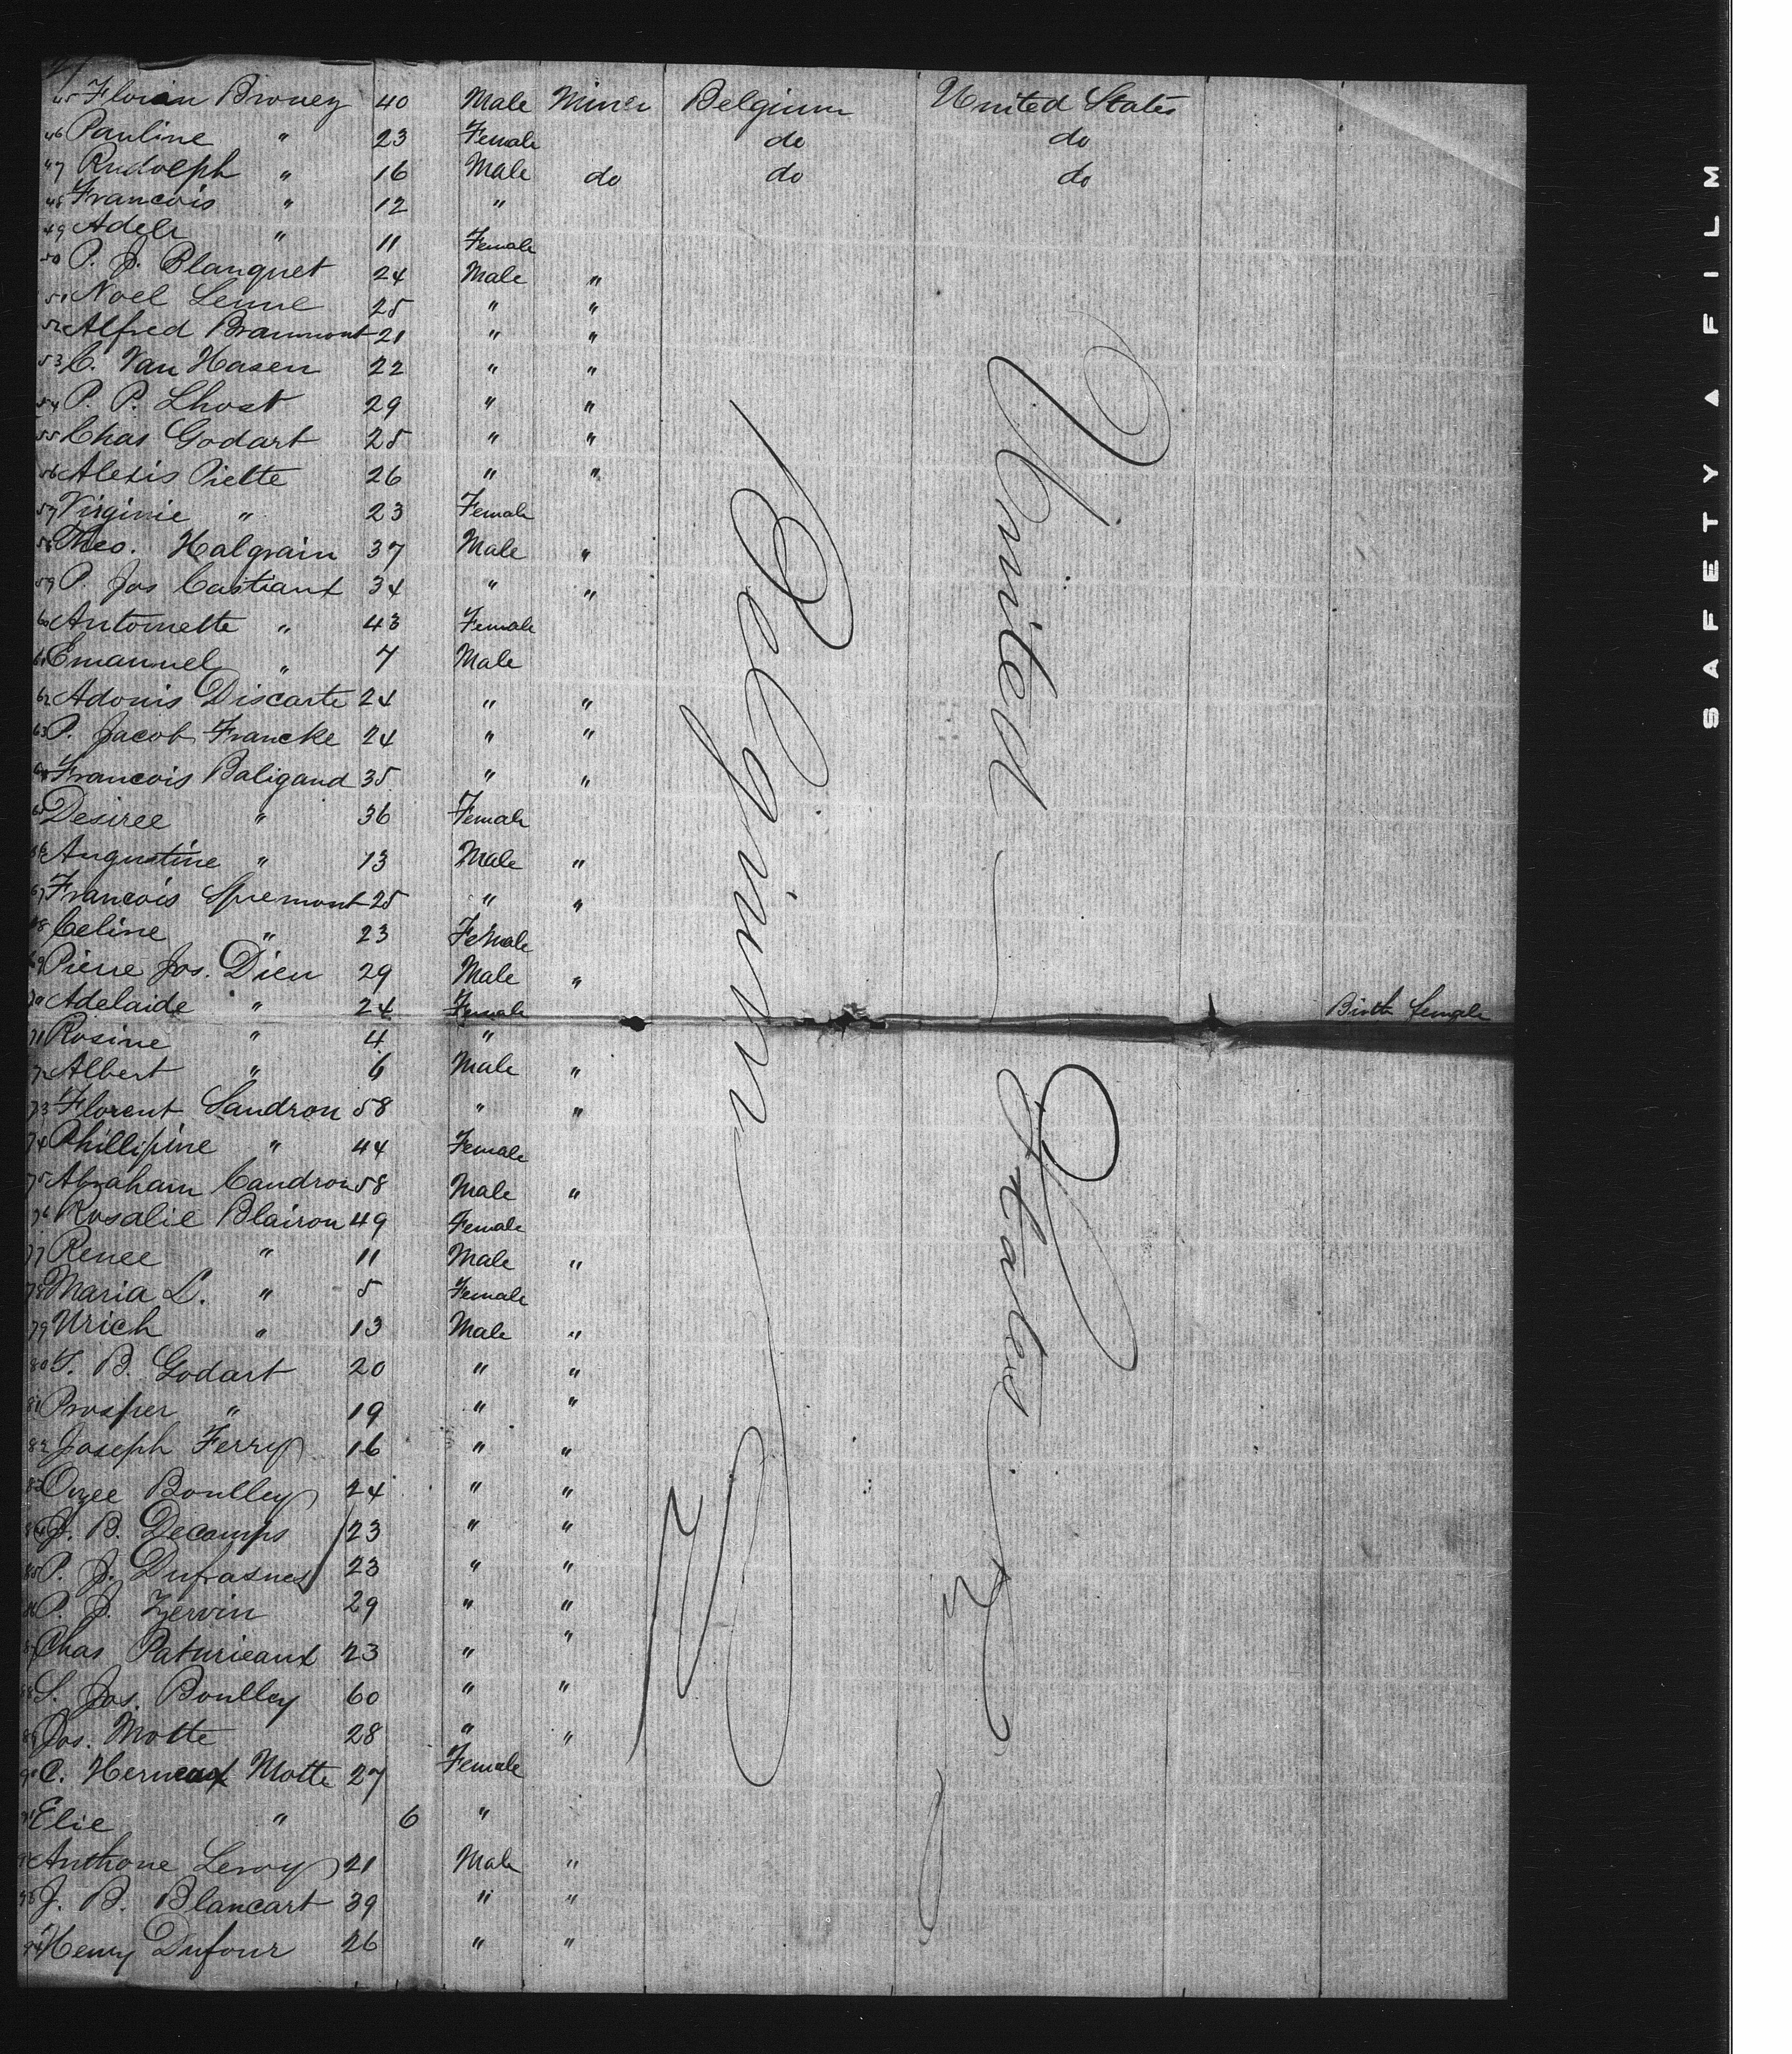 45 Florian Broney 40 Male Miner Belgium United States
46 Pauline " 23 Female do do
47 Rudolph " 16 Male do do do
48 Francois " 12 "
49 Adele " 11 Female
50 P. J. Blanquet 24 Male "
51 Noel Lenne 25 " "
52 Alfred Braumont 21 " "
53 C. Van Hasen 22 " "
54 P. P. Lhost 29 " "
55 Chas Godart 25 " "
56 Alexis Piette 26 " "
57 Virginie " 23 Female
58 Theo. Halgrain 37 Male "
59 P. Jos Castiaux 34 " "
60 Antoinette " 43 Female
61 Emanuel " 7 Male
62 Adonis Discarte 24 " "
63 P. Jacob Francke 24 " "
64 Francois Baligand 35 " "
65 Desiree " 36 Female
66 Augustine " 13 Male "
67 Francois Spremont 25 " "
68 Celine " 23 Female
69 Pierre Jos. Dieu 29 Male "
70 Adelaide " 24 Female Birth female
71 Rosine " 4 "
72 Albert " 6 Male "
73 Florent Sandron 58 " "
74 Phillipine " 44 Female
75 Abraham Caudron 58 Male "
76 Rosalie Blairon 49 Female
77 Renee " 11 Male "
78 Maria L. " 5 Female
79 Urich " 13 Male "
80 T. B. Godart 20 " "
81 Prosper " 19 " "
82 Joseph Ferry 16 " "
83 Ozee Boulley 24 " "
84 J. B. Decamps 23 " "
85 P. J. Dufrasnes 23 " "
86 P. J. Zervin 29 " "
87 Chas Paturieaux 23 " "
88 S. Jos. Boulley 60 " "
89 Jos. Motte 28 " "
90 C. Herneaux Motte 27 Female
91 Elie " 6 "
92 Anthone Leroy 21 Male "
93 J. B. Blancart 39 " "
94 Henry Dufour 26 " "
Belgium
United States
SAFETY ▲ FILM